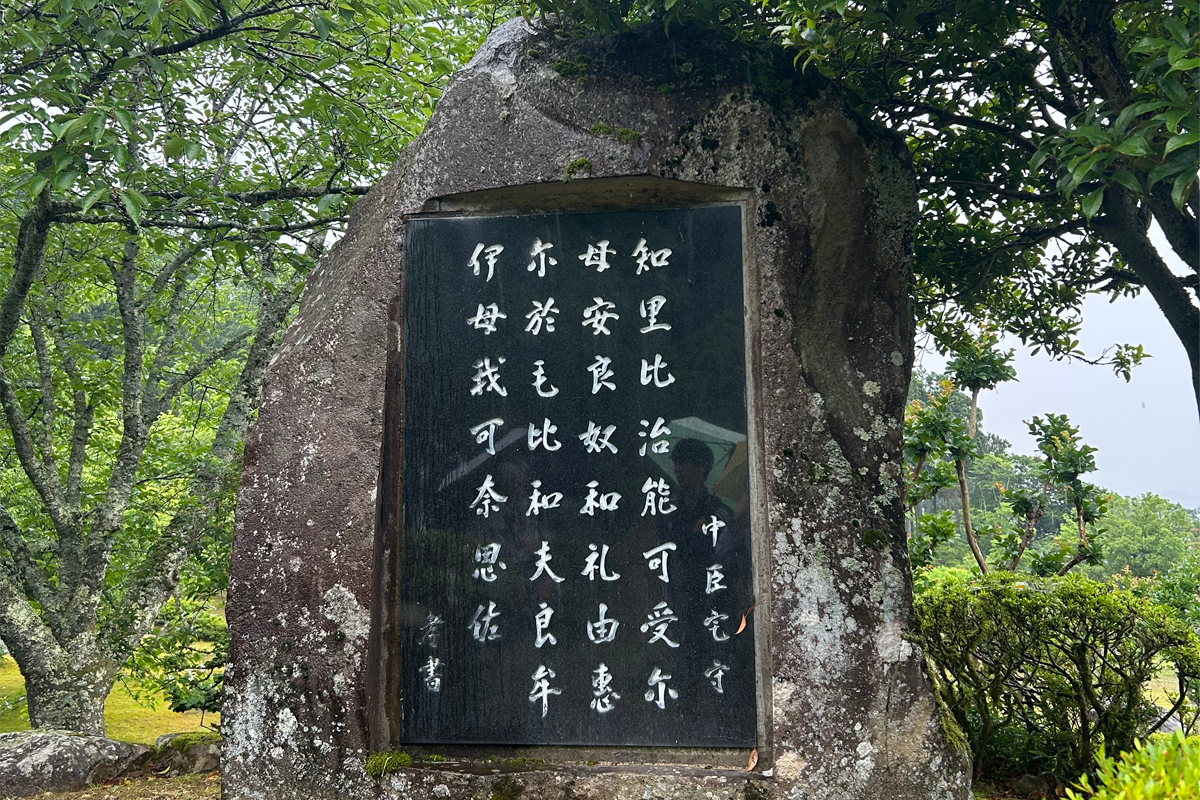 中臣宅守
知里比治能可受尓
母安良奴和礼由惠
尓於毛比和夫良牟
伊母我可奈思佐
書